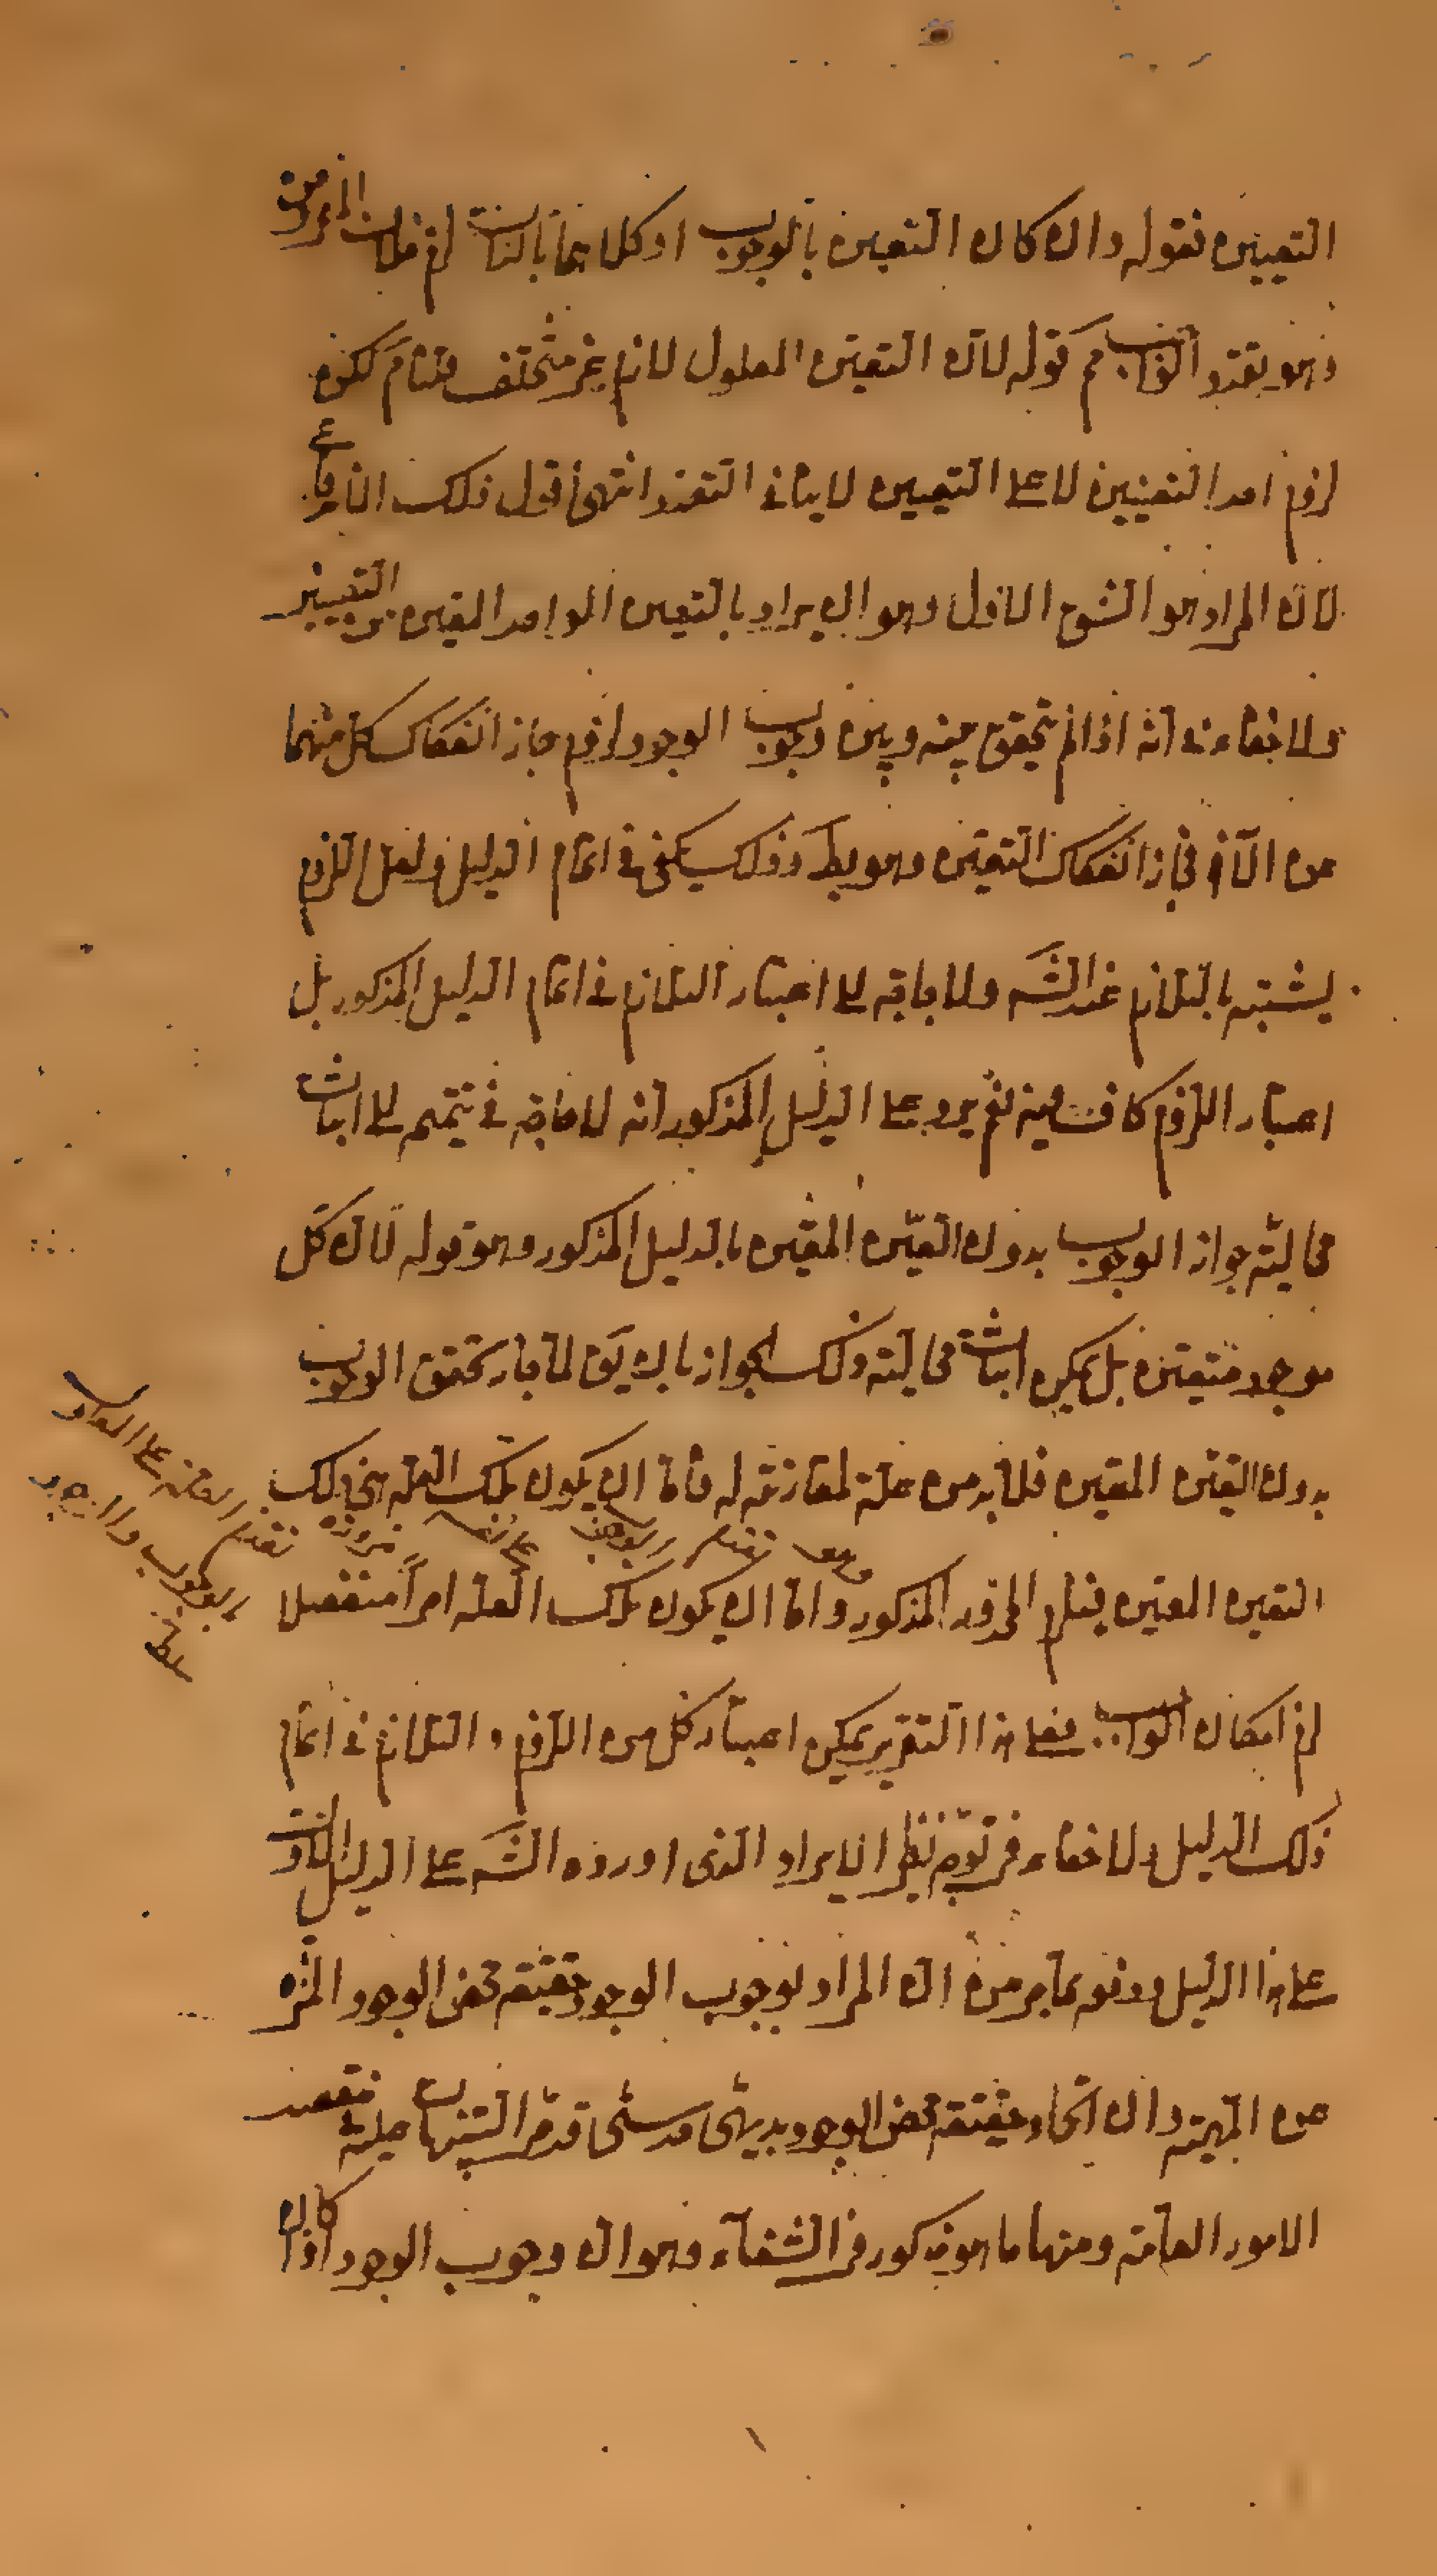 التعيين فقوله وان كان التعين بالوجوب او كلاهما بالذات لزم خلاف المفروض
وهو تعدد الواجب م قوله لان التعين المعلول لازم غير متخلف فلنا م لكن
لزوم احد التعينين لا على التعيين لا ينافى التعدد انتهى اقول ذلك
لان المراد هو الشق الاول وهو ان يراد بالتعين الواحد المعين من التعيينين
ولا خفاء فى انه اذا لم يتحقق بينه وبين وجوب الوجود لزوم جاز انفكاك كل منهما
من الآخر فجاز انفكاك التعين وهو بط وذلك يكفى فى اتمام الدليل ولعل اللزوم
يشتبه بالتلازم عند الشه ولا حاجة الى اعتبار التلازم فى اتمام الدليل المذكور بل
اعتبار اللزوم كاف فيه نعم يرد على الدليل المذكور انه لا حاجة فى تتميمه الى اثبات
محالية جواز الوجوب بدون التعين المعين بالدليل المذكور وهو قوله لان كل
موجود متعين بل يمكن اثبات محالية ذلك الجواز بان يق لما جاز تحقق الوجوب
بدون التعين المعين فلا بد من علة لمقارنته له فاما ان يكون تلك العلة هى ذلك
التعين المعين فيلزم المحذور المذكور واما ان يكون تلك العلة امراً منفصلا
وهو تقدم الوجوب على نفسه ضرورة تقدم العلة على المعلول
بالوجوب والوجود
لزم امكان الواجب فعلى هذا التقرير يمكن اعتبار كل من اللزوم والتلازم فى اتمام
ذلك الدليل ولا خفاء فى توجه نظير الايراد الذى اورده الشه على الدليل
على هذا الدليل ودفعه بما مر من ان المراد بوجوب الوجود حقيقة محض الوجود المنزه
عن المهية وان اتحاد حقيقة محض الوجود بديهى حدسى قد مر التنبيهات عليه فى مقصد
الامور العامة ومنها ما هو مذكور فى الشفاء وهو ان وجوب الوجود اذا كان